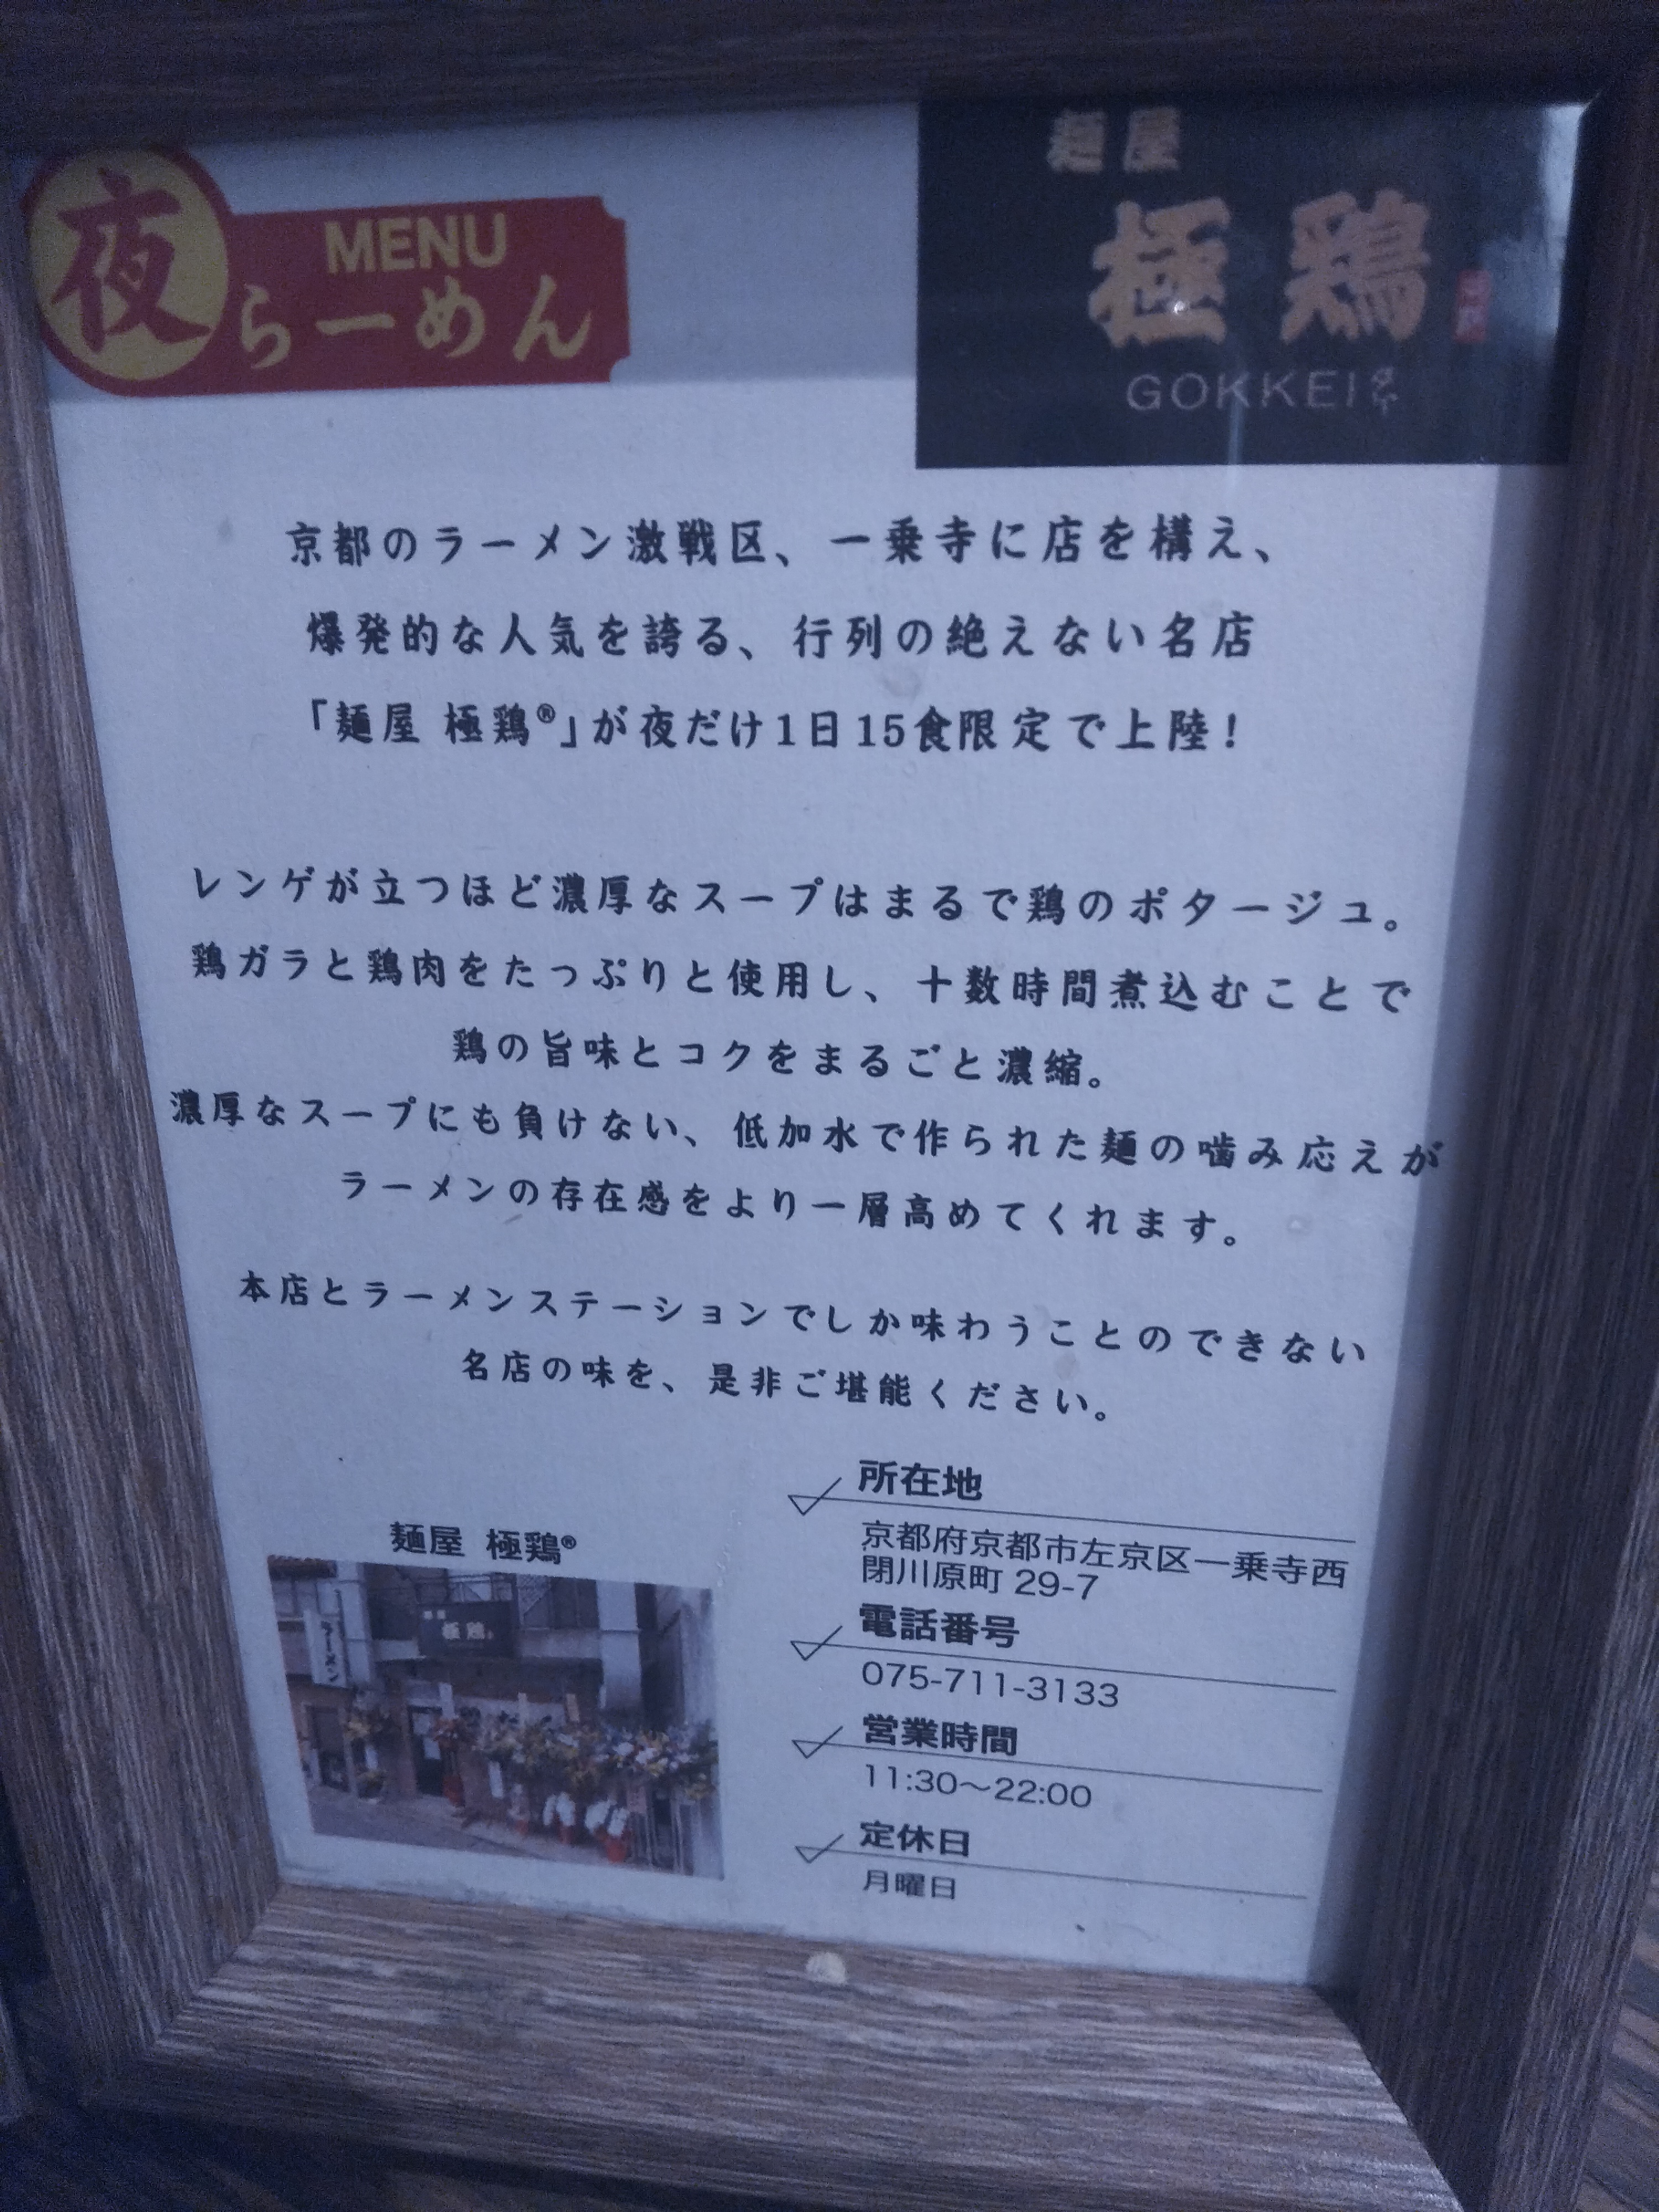 夜
MENU
らーめん
麺屋
極鶏
GOKKEI
京都のラーメン激戦区、一乗寺に店を構え、
爆発的な人気を誇る、行列の絶えない名店
「麺屋 極鶏®」が夜だけ1日15食限定で上陸!
レンゲが立つほど濃厚なスープはまるで鶏のポタージュ。
鶏ガラと鶏肉をたっぷりと使用し、十数時間煮込むことで
鶏の旨味とコクをまるごと濃縮。
濃厚なスープにも負けない、低加水で作られた麺の噛み応えが
ラーメンの存在感をより一層高めてくれます。
本店とラーメンステーションでしか味わうことのできない
名店の味を、是非ご堪能ください。
麺屋 極鶏®
極鶏
ラーメン
所在地
京都府京都市左京区一乗寺西
閉川原町 29-7
電話番号
075-711-3133
営業時間
11:30〜22:00
定休日
月曜日